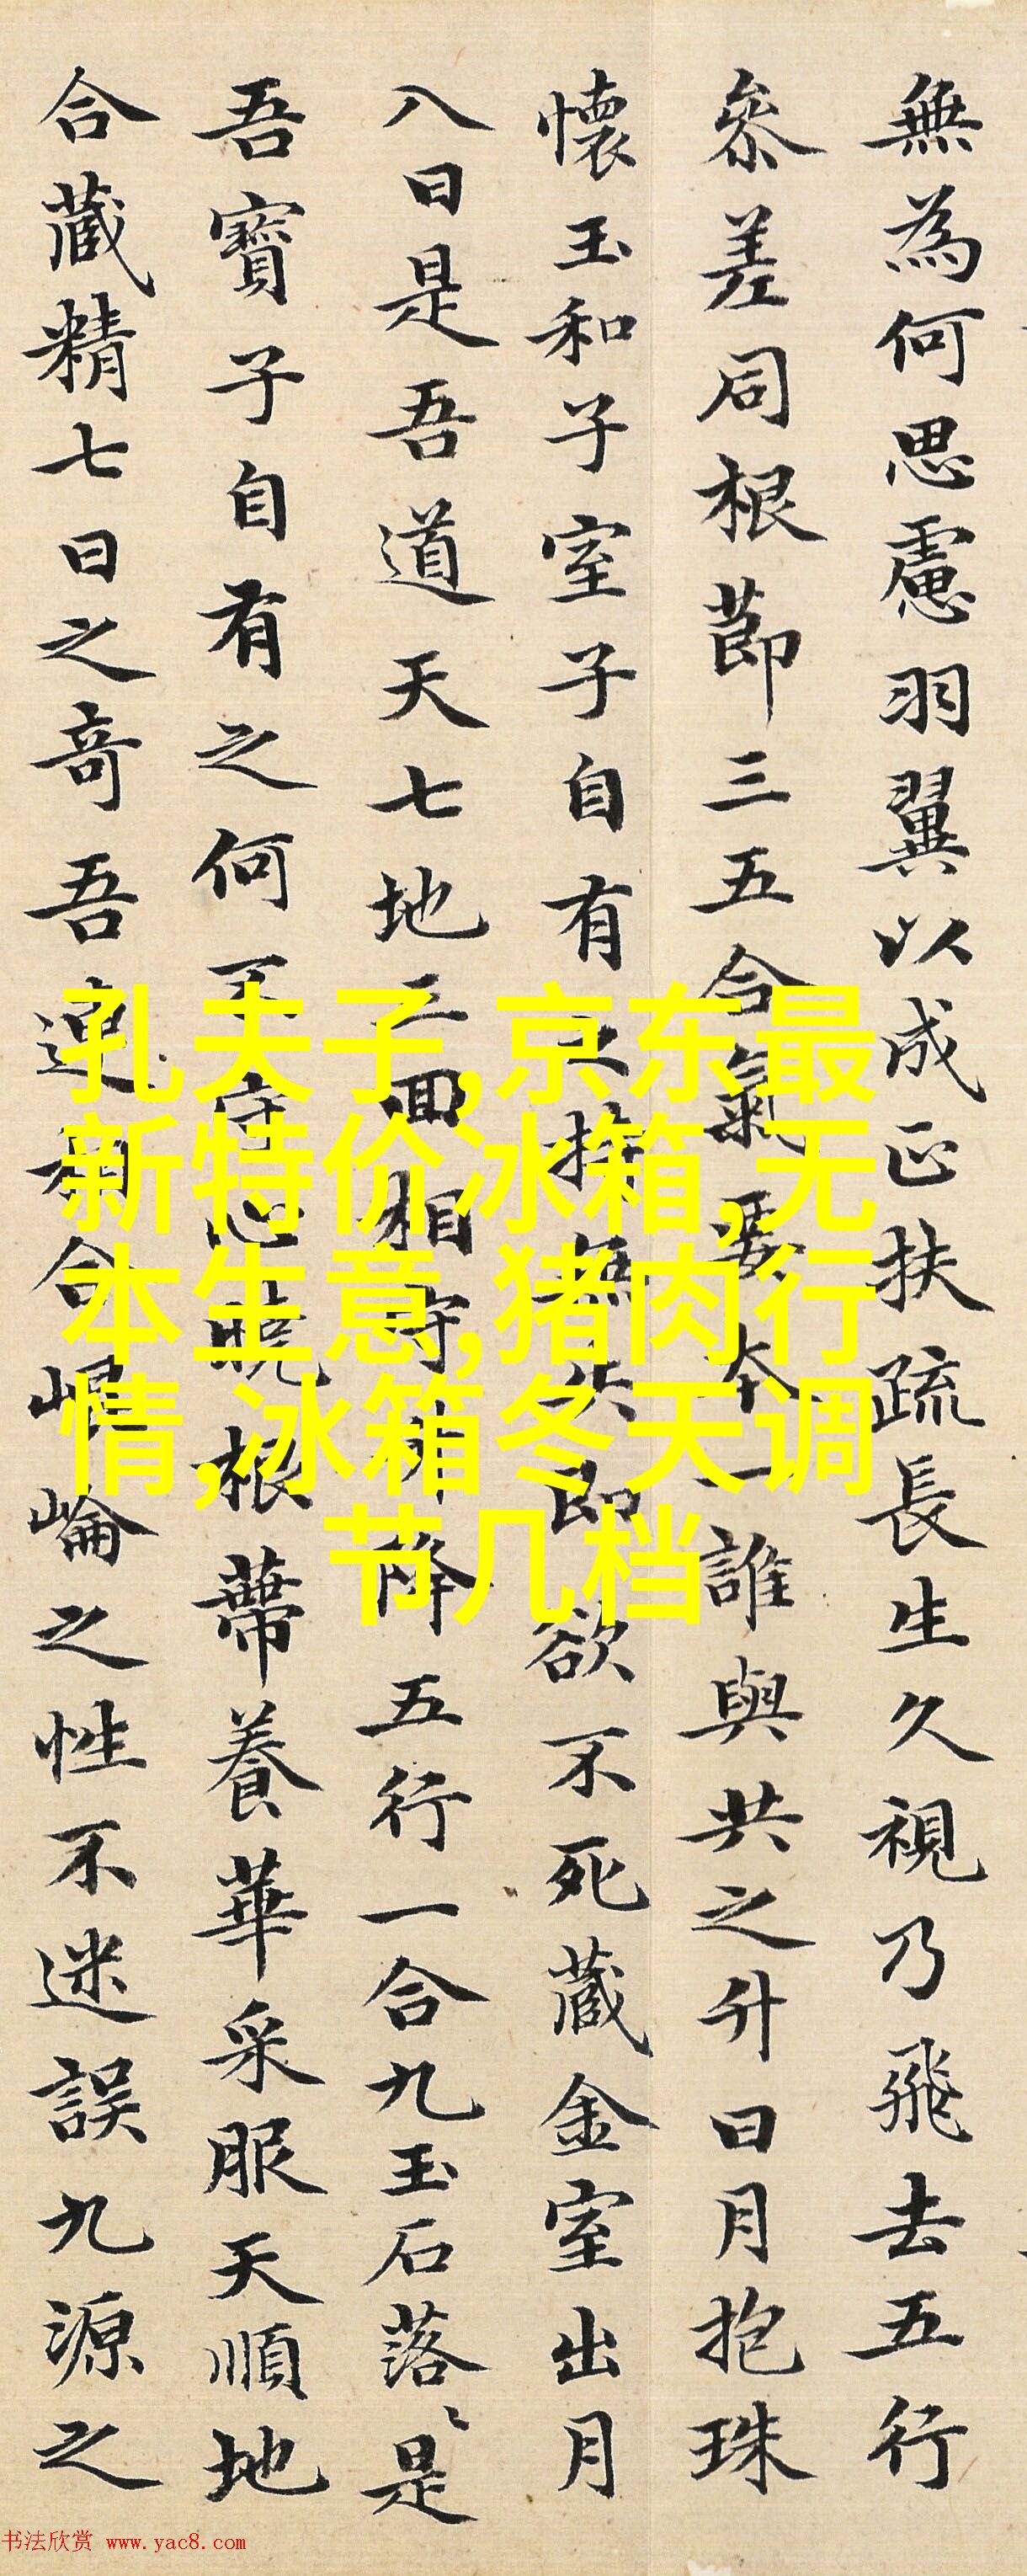 無為何思慮羽翼以成正扶疏長生久視乃飛去五行
參差同根節三五合氣要本一誰與共之升日月抱珠
懷玉和子室子自有之持無失即欲不死藏金室出月
入日是吾道天七地三回相守升降五行一合九玉石落〻是
吾寶子自有之何不守心曉根蔕養華采服天順地
合藏精七日之奇吾連相合崐崘之性不迷誤九源之
孔夫子,京东最
新特价冰箱,无
本生意,猪肉行
情,冰箱冬天调
节几档
书法欣赏 www.yac8.com